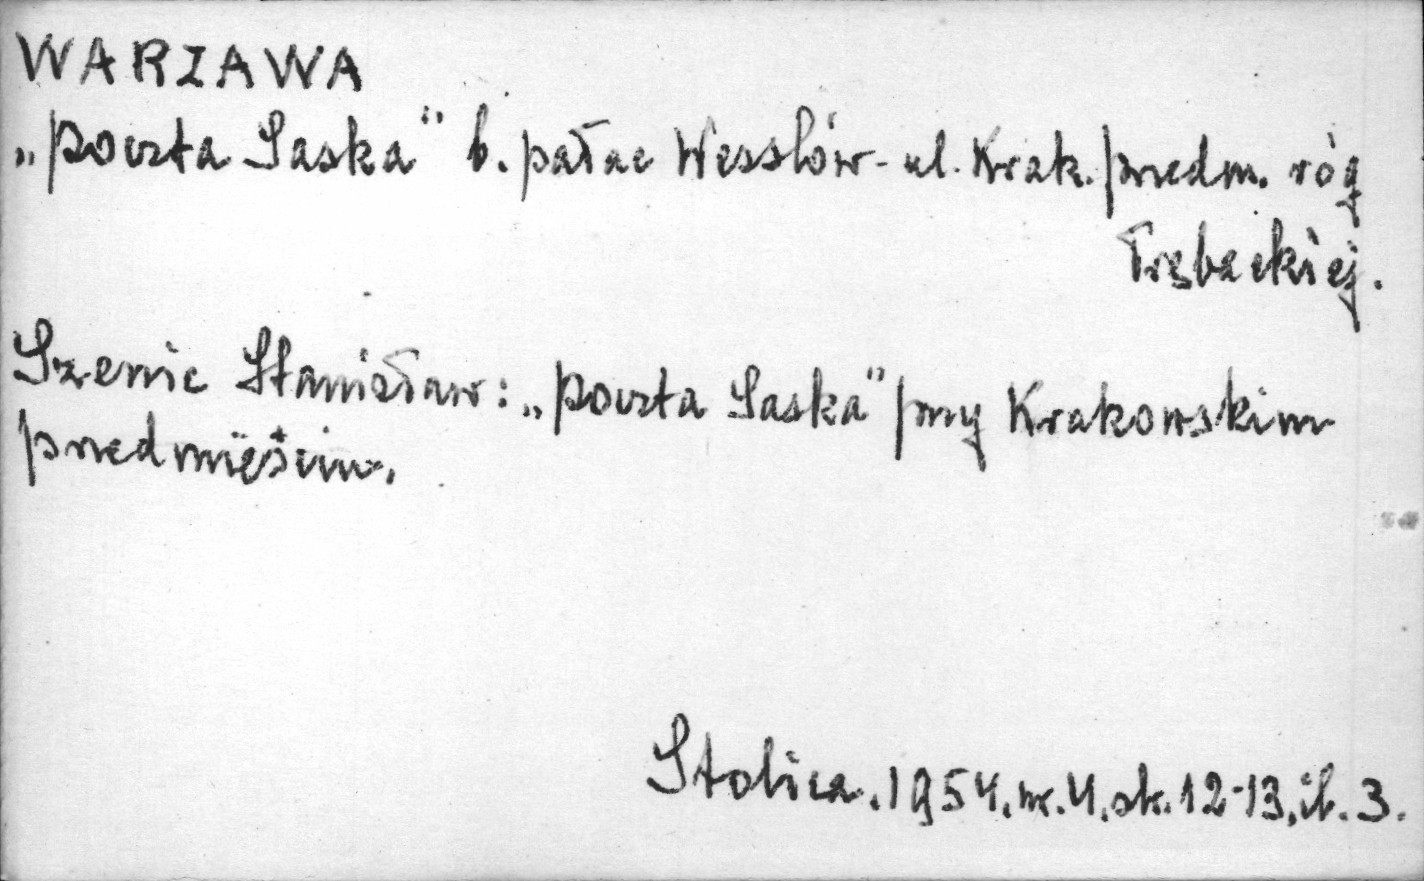 WARZAWA
„Poczta Saska" b. pałac Wesslów - ul. Krak. Przedm. róg
Trębackiej.
Szenic Stanisław: „Poczta Saska" przy Krakowskim
Przedmieściu.
Stolica. 1954. nr. 4. str. 12-13, il. 3.